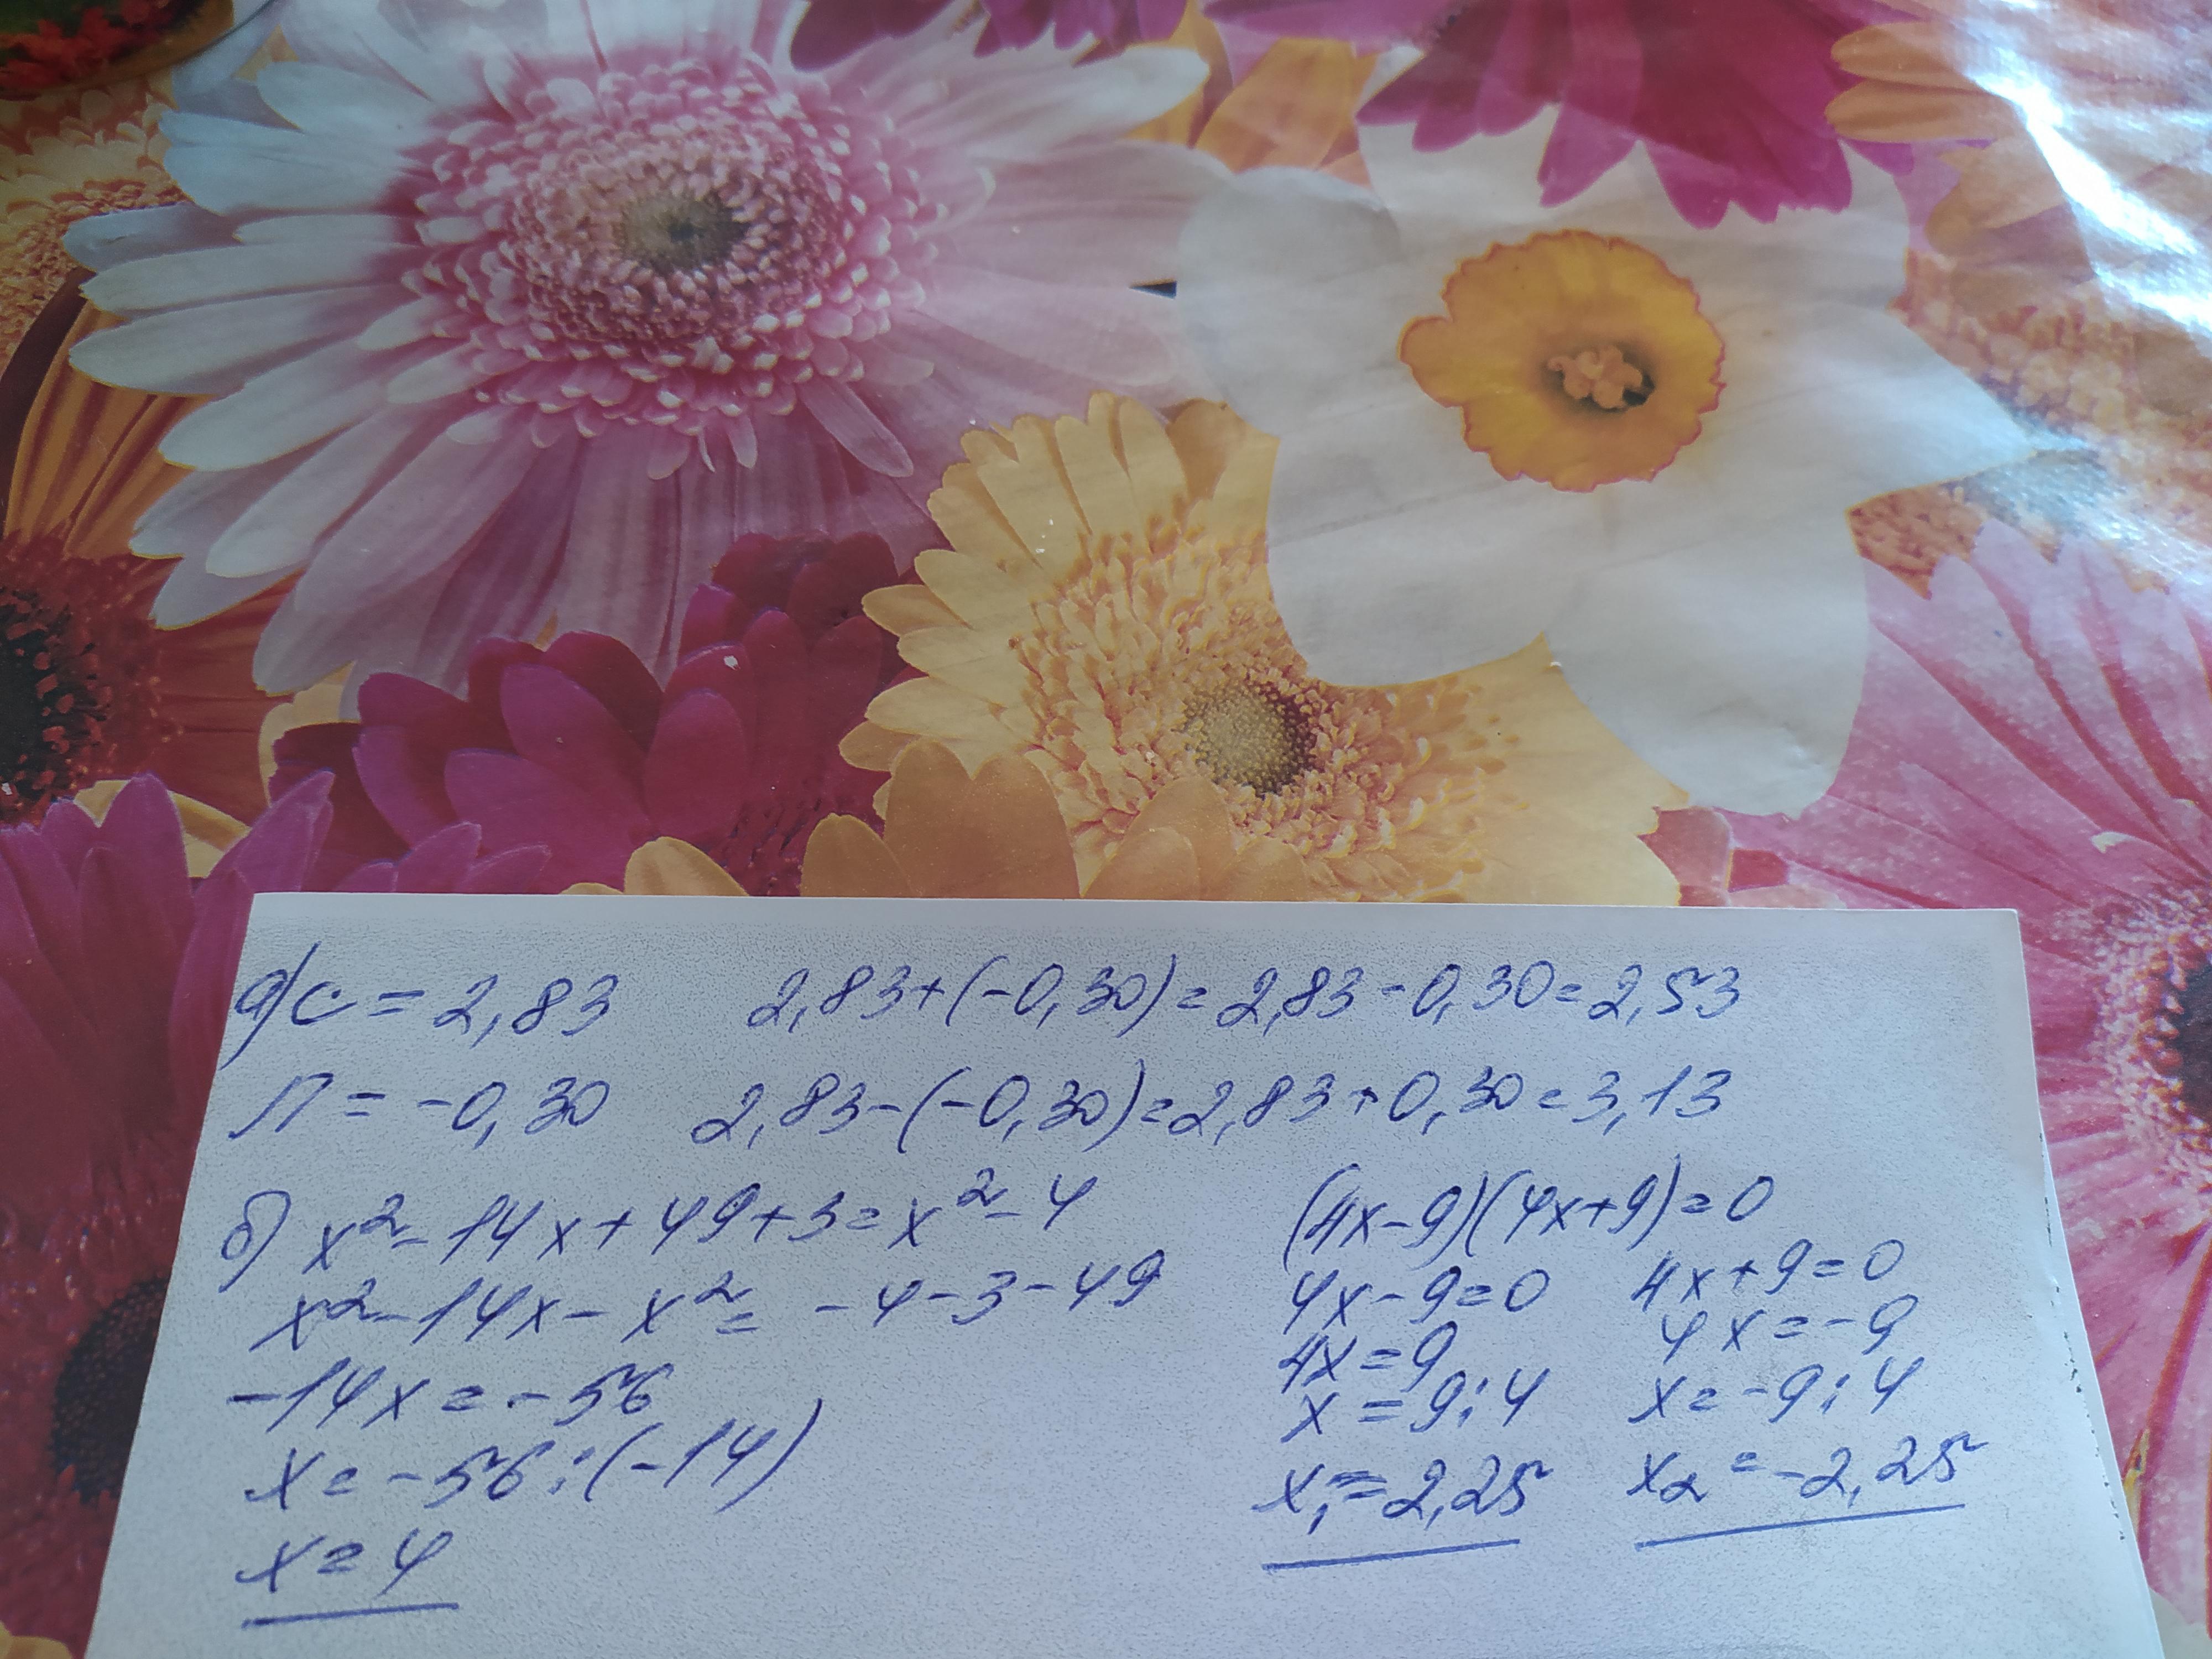 а) с = 2,83 2,83+(-0,30)=2,83-0,30=2,53
п = -0,30 2,83-(-0,30)=2,83+0,30=3,13
б) x²-14x+49+3=x²-4
x²-14x-x²= -4-3-49
-14x=-56
x=-56:(-14)
x=4
(4x-9)(4x+9)=0
4x-9=0 4x+9=0
4x=9 4x=-9
x=9:4 x=-9:4
x₁=2,25 x₂=-2,25